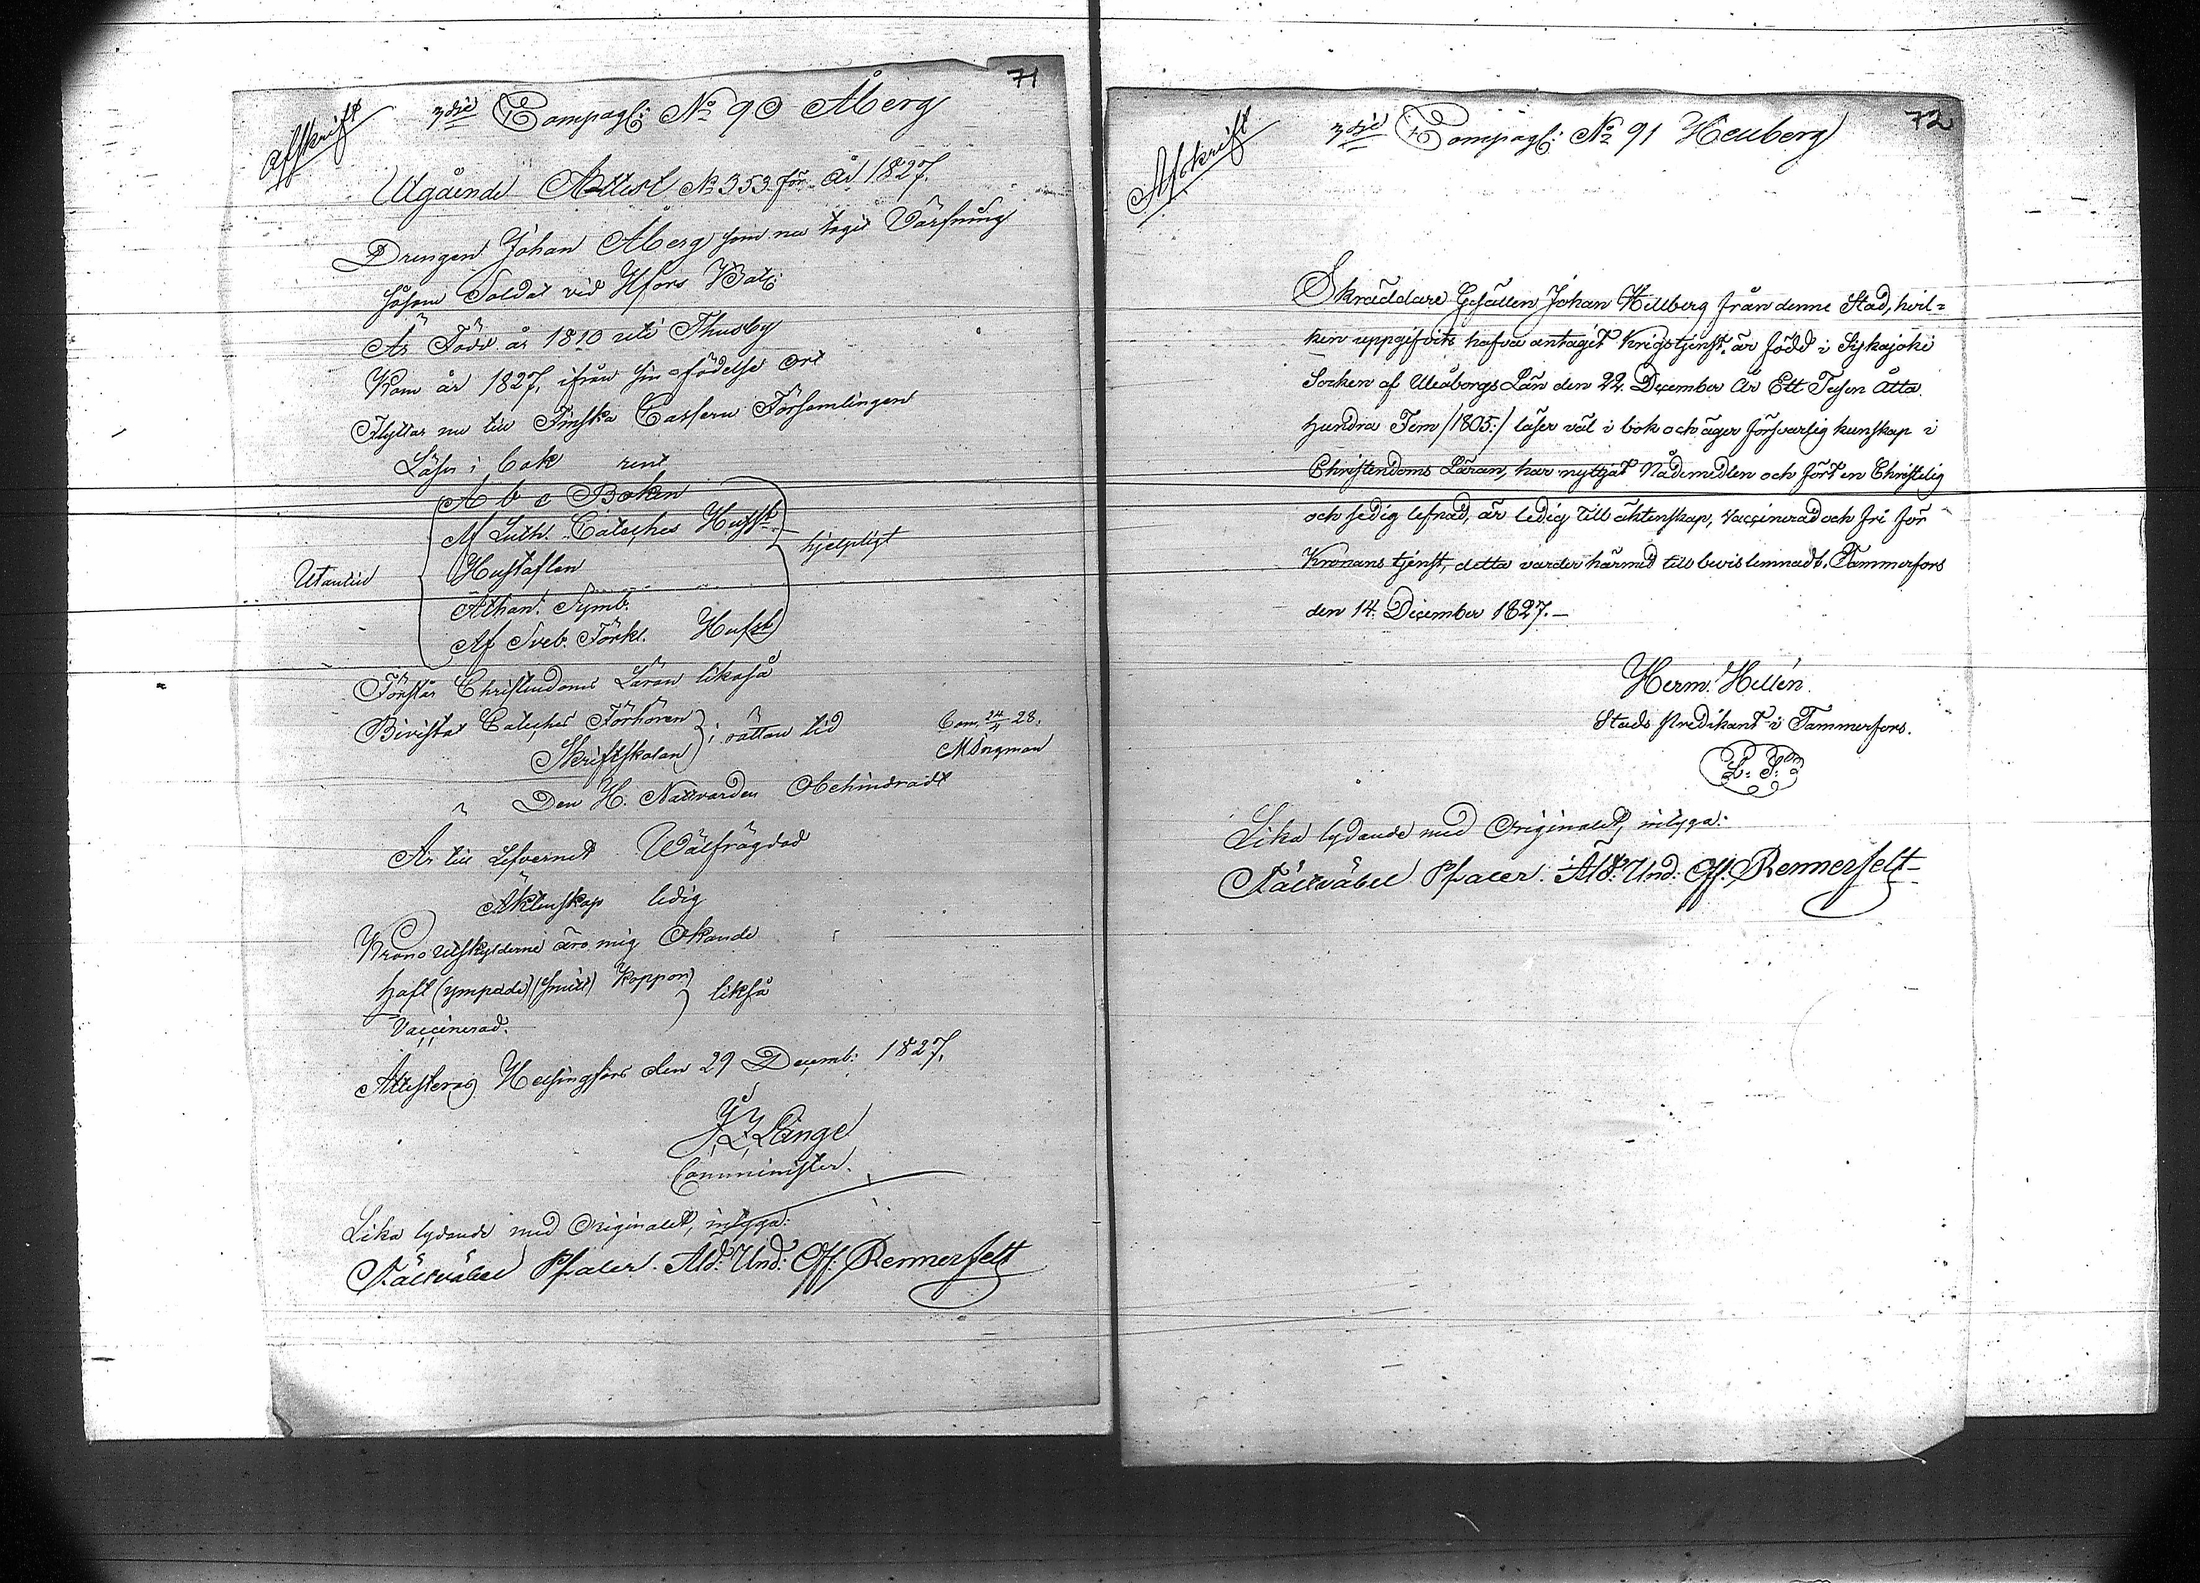 71
Afskrift
3die Compagl: No 90 Åberg
Utgående Attest No 353 för År 1827.
Drengen Johan Åberg som nu tagit Värfning
såsom Soldat vid Hfors Bat:
Är Född år 1810 uti Thusby
Kom år 1827, ifrån sin födelse ort
Flyttar nu till Finska Casern Församlingen
Läser i bok rent
A b c Boken
Af Luth. Cateches Hufst.
Hustaflan
Utantill
hjelpligt
Athan. Symb.
Af Sveb. Förkl. Hufst.
Förstår Christendoms Läran likaså
Bivistat Catechet Förhören
Skriftskolan
i rättan tid
Com. 24/4 28.
Den H. Nattvarden Obehindradt
Är till Lefvernet Wälfrägdad
Äktenskap ledig
Krono Utskylderne äro mig Okände
Haft (ympade) (smitt) Koppor
Vaccinerad.
likså
Attesteras Helsingfors den 29 Decemb: 1827.
Långe
Comminister.
Lika lydande med Originalet, intyga:
Fältväbel Pfaler. Ald: Und: Off: Rennerfelt
72
Afskrift
3die Compagl: No 91 Hellberg
Skräddare Gesällen Johan Hillberg från denne Stad, hvil=
ken uppgifvits hafva antagit Krigstjenst, är född i Sijkajoki
Socken af Uleåborgs Län den 22. December År Ett Tusen Åtta
hundra Fem /1805:/ läser väl i bok och äger försvarlig kunskap i
Christendoms Läran, har nyttjat Nådemedlen och fört en Christelig
och sedig lefnad, är ledig till äktenskap, vaccinerad och fri för
Kronans tjenst, detta varder härmed till bevis lemnadt. Tammerfors
den 14. December 1827.—
Herm. Hellén.
Stads Predikant i Tammerfors.
L. S.
Lika lydande med Originalet, intyga:
Fältväbel Pfaler. Ald: Und: Off: Rennerfelt